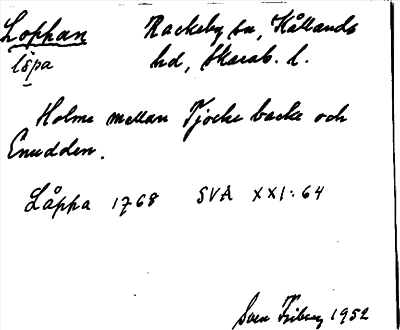 Lophan Rackeby sn, Kållands
löpa hd, Skarab. l.
Holme mellan Tjocke backe och
Enudden.
Låppa 1768 SVA XXI:64
Sven Friberg 1952